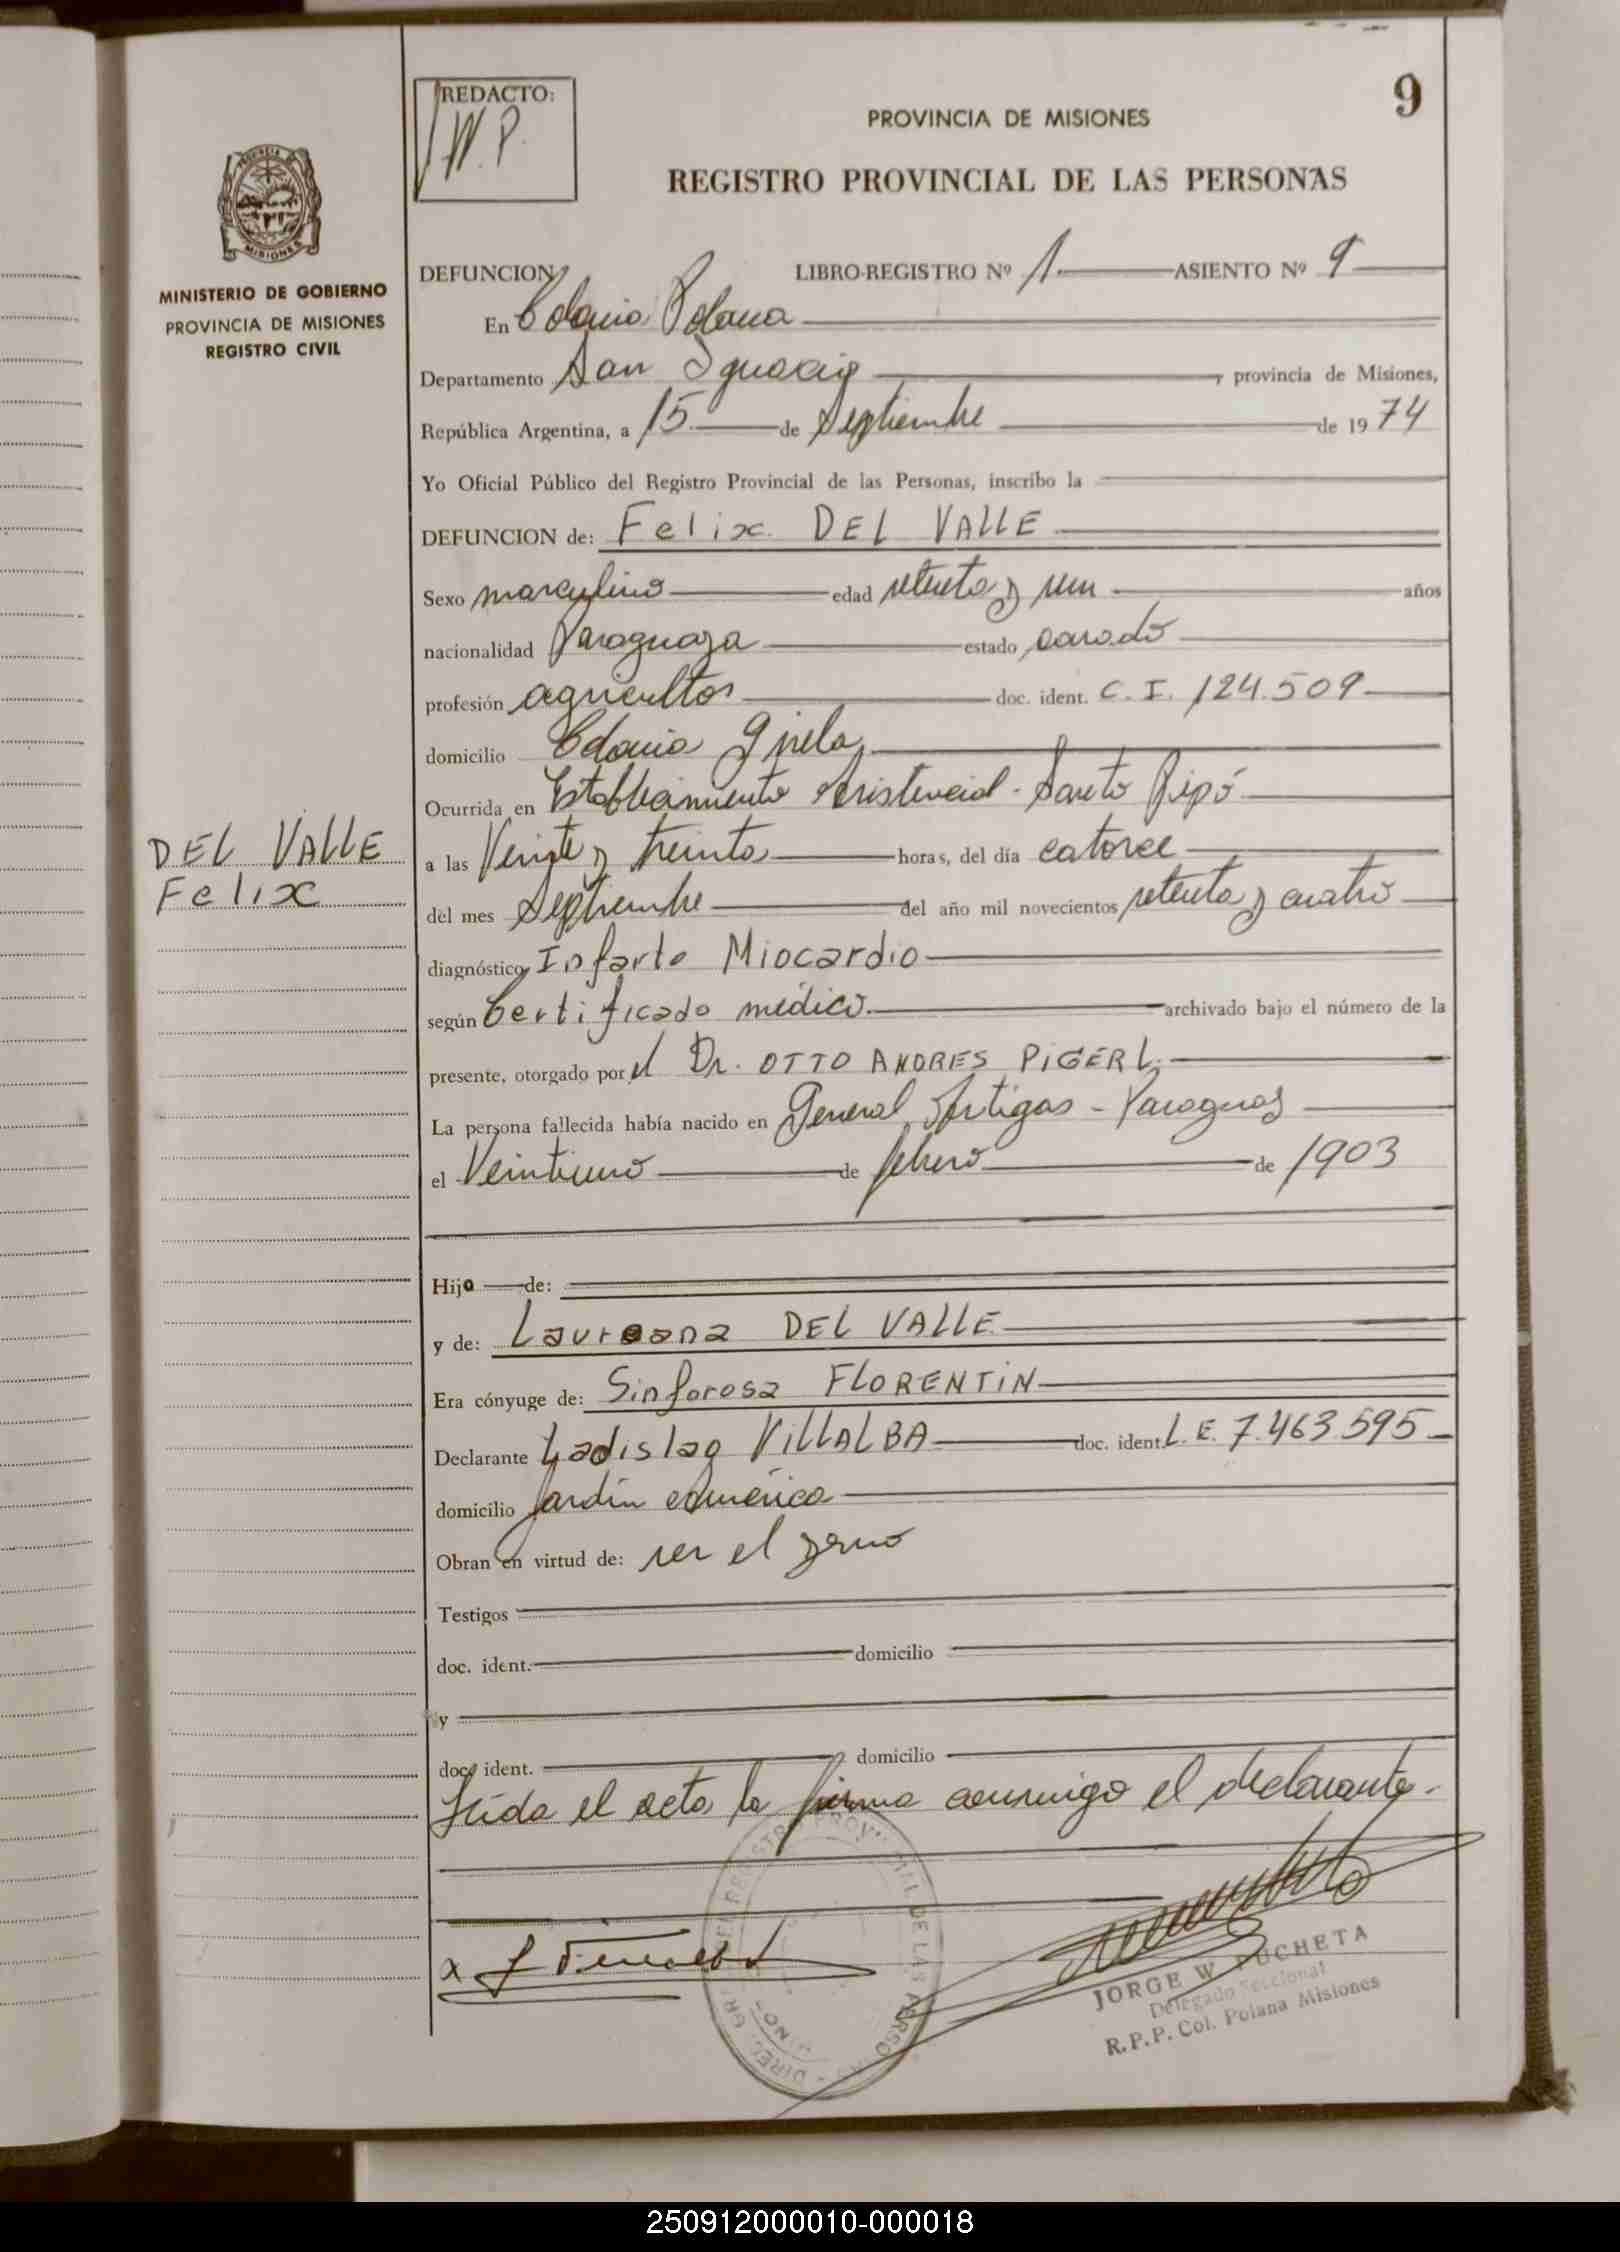 REDACTO:
W.P.
9
PROVINCIA DE MISIONES
REGISTRO PROVINCIAL DE LAS PERSONAS
PROVINCIA DE
MISIONES
MINISTERIO DE GOBIERNO
PROVINCIA DE MISIONES
REGISTRO CIVIL
DEFUNCION LIBRO-REGISTRO Nº 1 ASIENTO Nº 9
En Colonia Polana
Departamento San Ignacio, provincia de Misiones,
República Argentina, a 15 de Septiembre de 1974
Yo Oficial Público del Registro Provincial de las Personas, inscribo la
DEFUNCION de: Felix DEL VALLE
Sexo masculino edad setenta y un años
nacionalidad Paraguaya estado casado
profesión agricultor doc. ident. C.I. 124.509
domicilio Colonia Gisela
Ocurrida en Establecimiento Asistencial - Santo Pipó
DEL VALLE
Felix
a las Veinte y treinta horas, del día catorce
del mes Septiembre del año mil novecientos setenta y cuatro
diagnóstico Infarto Miocardio
según Certificado médico. archivado bajo el número de la
presente, otorgado por el Dr. OTTO ANDRES PIGERL
La persona fallecida había nacido en General Artigas - Paraguay
el Veintiuno de febrero de 1903
Hijo de:
y de: Laureana DEL VALLE
Era cónyuge de: Sinforosa FLORENTIN
Declarante Ladislao VILLALBA doc. ident. L.E. 7.463.595
domicilio Jardín América
Obran en virtud de: ser el yerno
Testigos
doc. ident. domicilio
y
doc. ident. domicilio
Leida el acta la firma conmigo el declarante.
x
JORGE W. PUCHETA
Delegado Seccional
R.P.P. Col. Polana Misiones
250912000010-000018